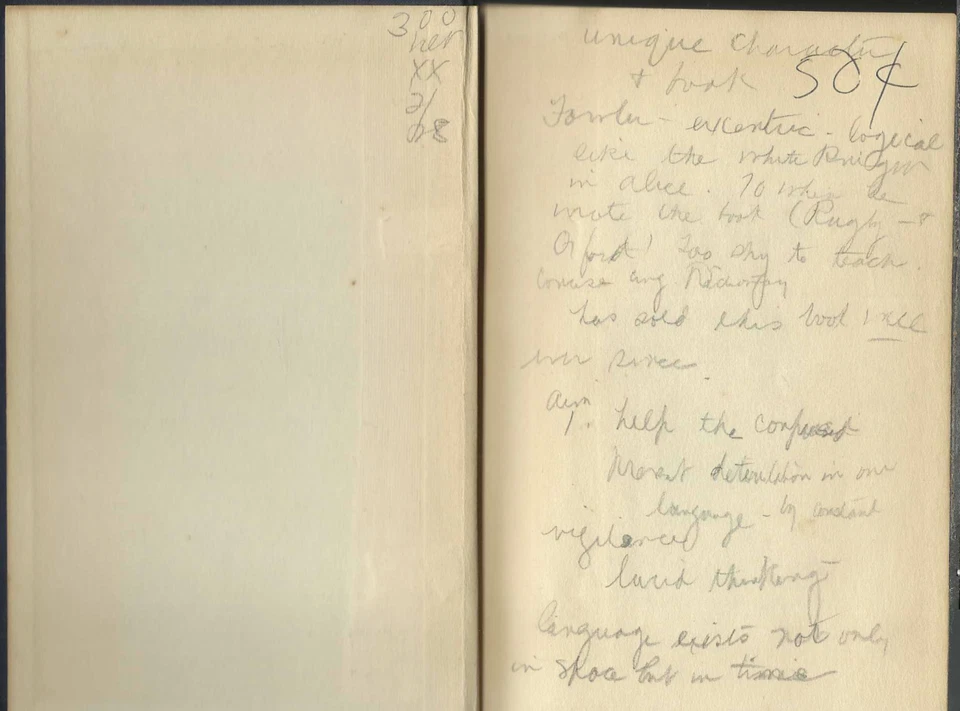 300
net
XX
2/
unique character
50¢
& book
Fowler - excentric - logical
like the white Knight
in alice. 70 when he
wrote the book (Rugby - &
Oxford) Too shy to teach.
concise eng Dictionary
has sold this book well
ever since.
aim
1. help the confused
Prevent in our
language - by constant
vigilance
lucid thinking
language exists not only
in space but in time